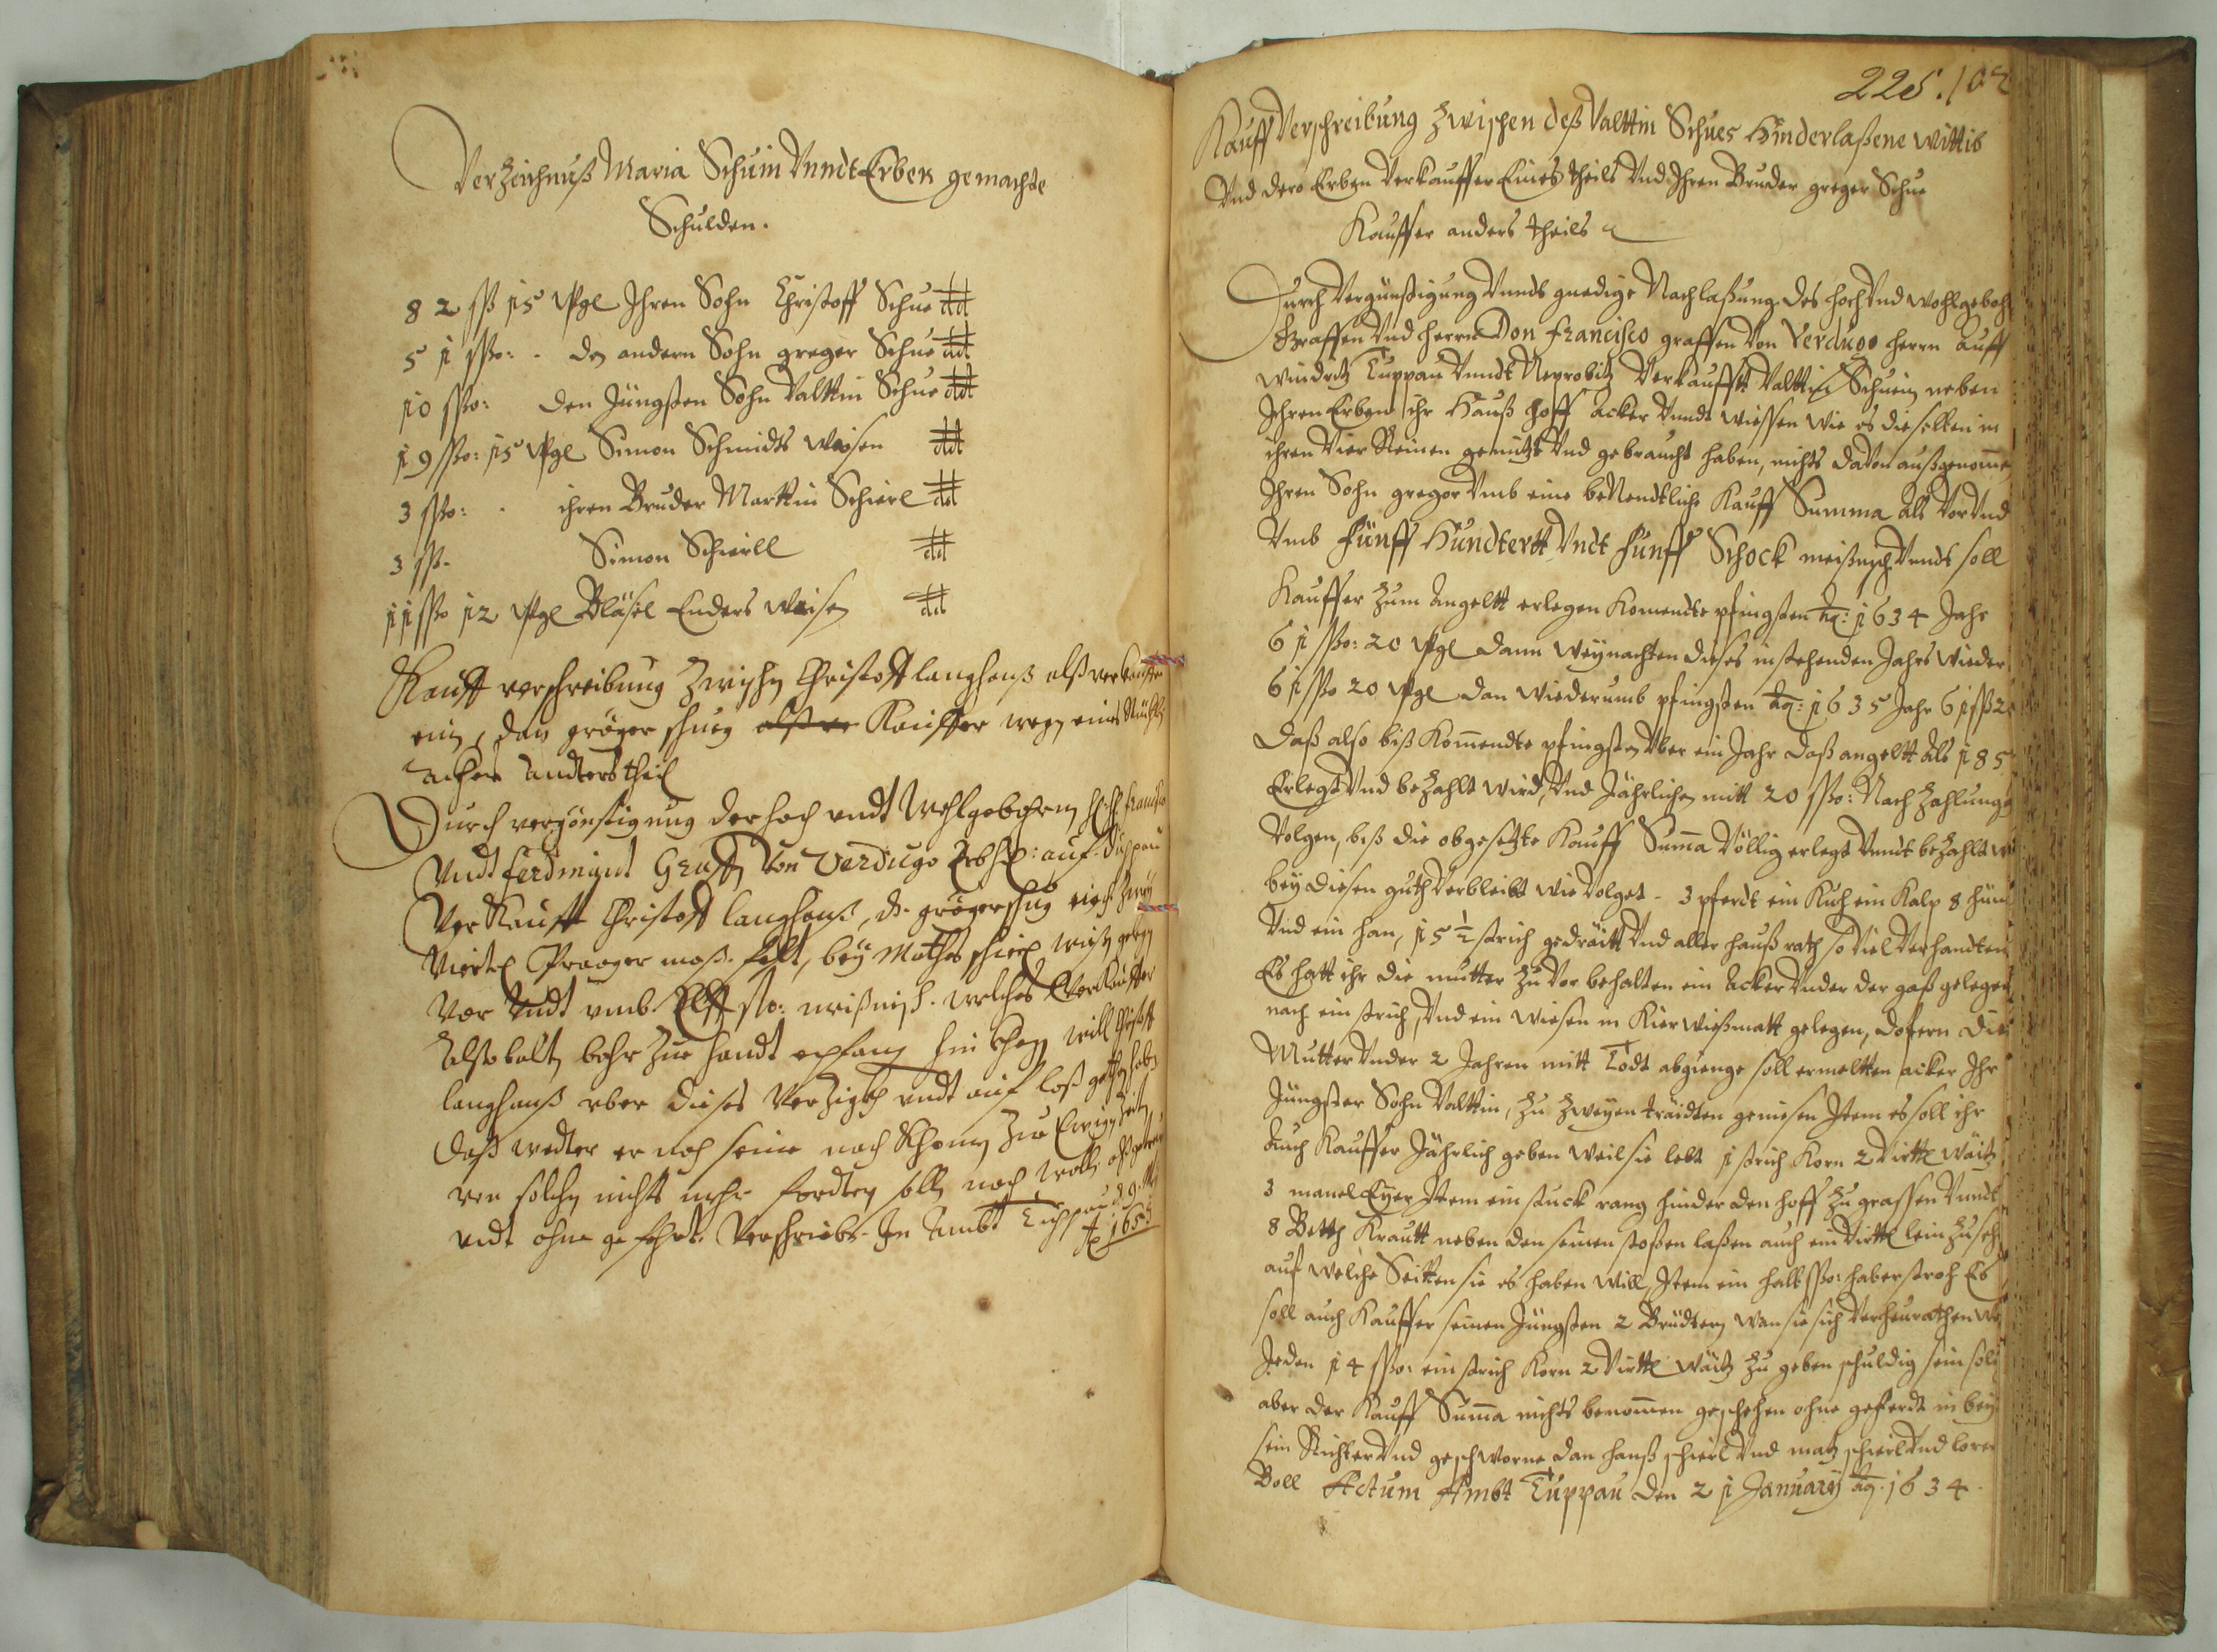 Verzeichnuß Maria Schuin Vnndt Erben gemachte
Schulden.
82 ßß 15 wgl Ihren Sohn Christoff Schue dt
51 ßßo: - den andern Sohn greger Schue dt
10 ßßo: den Jüngsten Sohn Valttin Schue dt
19 ßßo: 15 wgl Simon Schmidts Waisen dt
3 ßßo: - ihren Bruder Marttin Schierl dt
3 ßß- Simon Schierll dt
11 ßßo 12 wgl Bläsel Enders Waisen dt
Kauff verschreibung Zwischen Christoff langhanß alß verkauffer
ein, dan gröger schuen Kauffer wegen eines
acker andters theil
Durch vergönstigung der hoch undt Wohlgebohrnen
Undt Ferdinant Graffen Von Verdugo Erbh: auf Duppau
Verkaufft Christoff langhanß, gröger schue
Viertl Praager maß. felt, bey Mathes schierl
Vor Undt umb Elff ßo: meißnisch. welches Verkauffer
Alsobalten bahr Zue handt epfangen will Christoff
langhanß uber dieses Verzigt undt auf laß
daß wedter er noch seine nach Khomen Zue Ewigen Zeiten
von solchen nichts mehr fordten soll noch woll
undt ohne gefehrt. Verschriebe. In Ambt Tuppau
1655
225. 102
Kauff Verschreibung Zwischen deß Valttin Schues Hinderlaßene Wittib
Vnd dero Erben Verkauffer Eines theils Vnd Ihren Bruder greger Schue
Kauffer anders theils
Durch Vergünstigung Vnndt gnedige Nachlaßung des hoch Vnd wohlgeboh
Graffen Vnd herrn Don Francisco graffen Von Verdugo herrn Auff
Windritz Tuppau Vnndt Neprobitz Verkaufft Valttin Schuein neben
Ihren Erben ihr Hauß hoff acker Vnndt wiessen wie es dieselben in
ihren Vier Reinen genutzt Vnd gebraucht haben, nichts daVon außgenome
Ihren Sohn gregor Vmb eine beNendtliche Kauff Summa Als Vor Vnd
Vmb Fünff Hundertt Vndt Fünff Schock meißnisch Vnndt soll
Kauffer zum Angeltt erlegen Komendte pfingsten Ao: 1634 Jahr
61 ßßo: 20 wgl dann Weynachten dieses instehenden Jahrs wieder
61 ßßo 20 wgl dan wiederumb pfingsten Ao: 1635 Jahr 61 ßß 2
daß also biß Komendte pfingsten Vber ein Jahr daß angeltt als 185
Erlegt Vnd bezahlt wird, Vnd Jährlichen mitt 20 ßßo: Nach Zahlung
Volgen, biß die obgesetzte Kauff Suma Völlig erlegt Vnndt bezahlt
bey diesen guth Verbleibt wie Volget - 3 pferdt ein Kuh ein Kalp 8 hün
Vnd ein han, 15½ strich getraitt Vnd aller haußrath so viel Verhandten
Es hatt ihr die mutter zu Vor behalten ein acker Vnder der gaß gelegen
nach ein strich, Vnd ein wiesen in Kierwießmatt gelegen, dofern die
Mutter Vnder 2 Jahren mitt Todt abgienge soll ermeltten acker Ihr
Jüngster Sohn Valttin, zu zweyen traidten geniesen Item es soll ihr
Auch Kauffer Jährlich geben weil sie lebt 1 strich Korn 2 Virttl Waitz
3 manel Eyer Item ein stuck rang hinder den hoff zu graßen Vnndt
8 Betth Krautt neben den seinen stoßen laßen auch ein Virttl lein zu seh
auf welche Seitten sie es haben will, Item ein halb ßßo: haberstroh Es
soll auch Kauffer seinen Jüngsten 2 Brüdtern wan sie sich Verheurathen
Jeden 14 ßßo: ein strich Korn 2 Virttl waitz zu geben schuldig sein soll
aber der Kauff Suma nichts benomen geschehen ohne geferdt in bey
sein Richter Vnd geschworne dan hanß schierl Vnd matz schierl Vnd
Boll Actum Ambt Tuppau den 21 January Ao. 1634